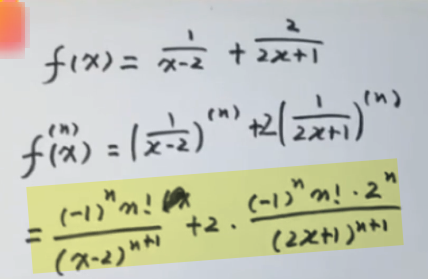 f(x) = \frac{1}{x-2} + \frac{2}{2x+1}
f^{(n)}(x) = \left(\frac{1}{x-2}\right)^{(n)} + 2\left(\frac{1}{2x+1}\right)^{(n)}
= \frac{(-1)^n n!}{(x-2)^{n+1}} + 2 \cdot \frac{(-1)^n n! \cdot 2^n}{(2x+1)^{n+1}}